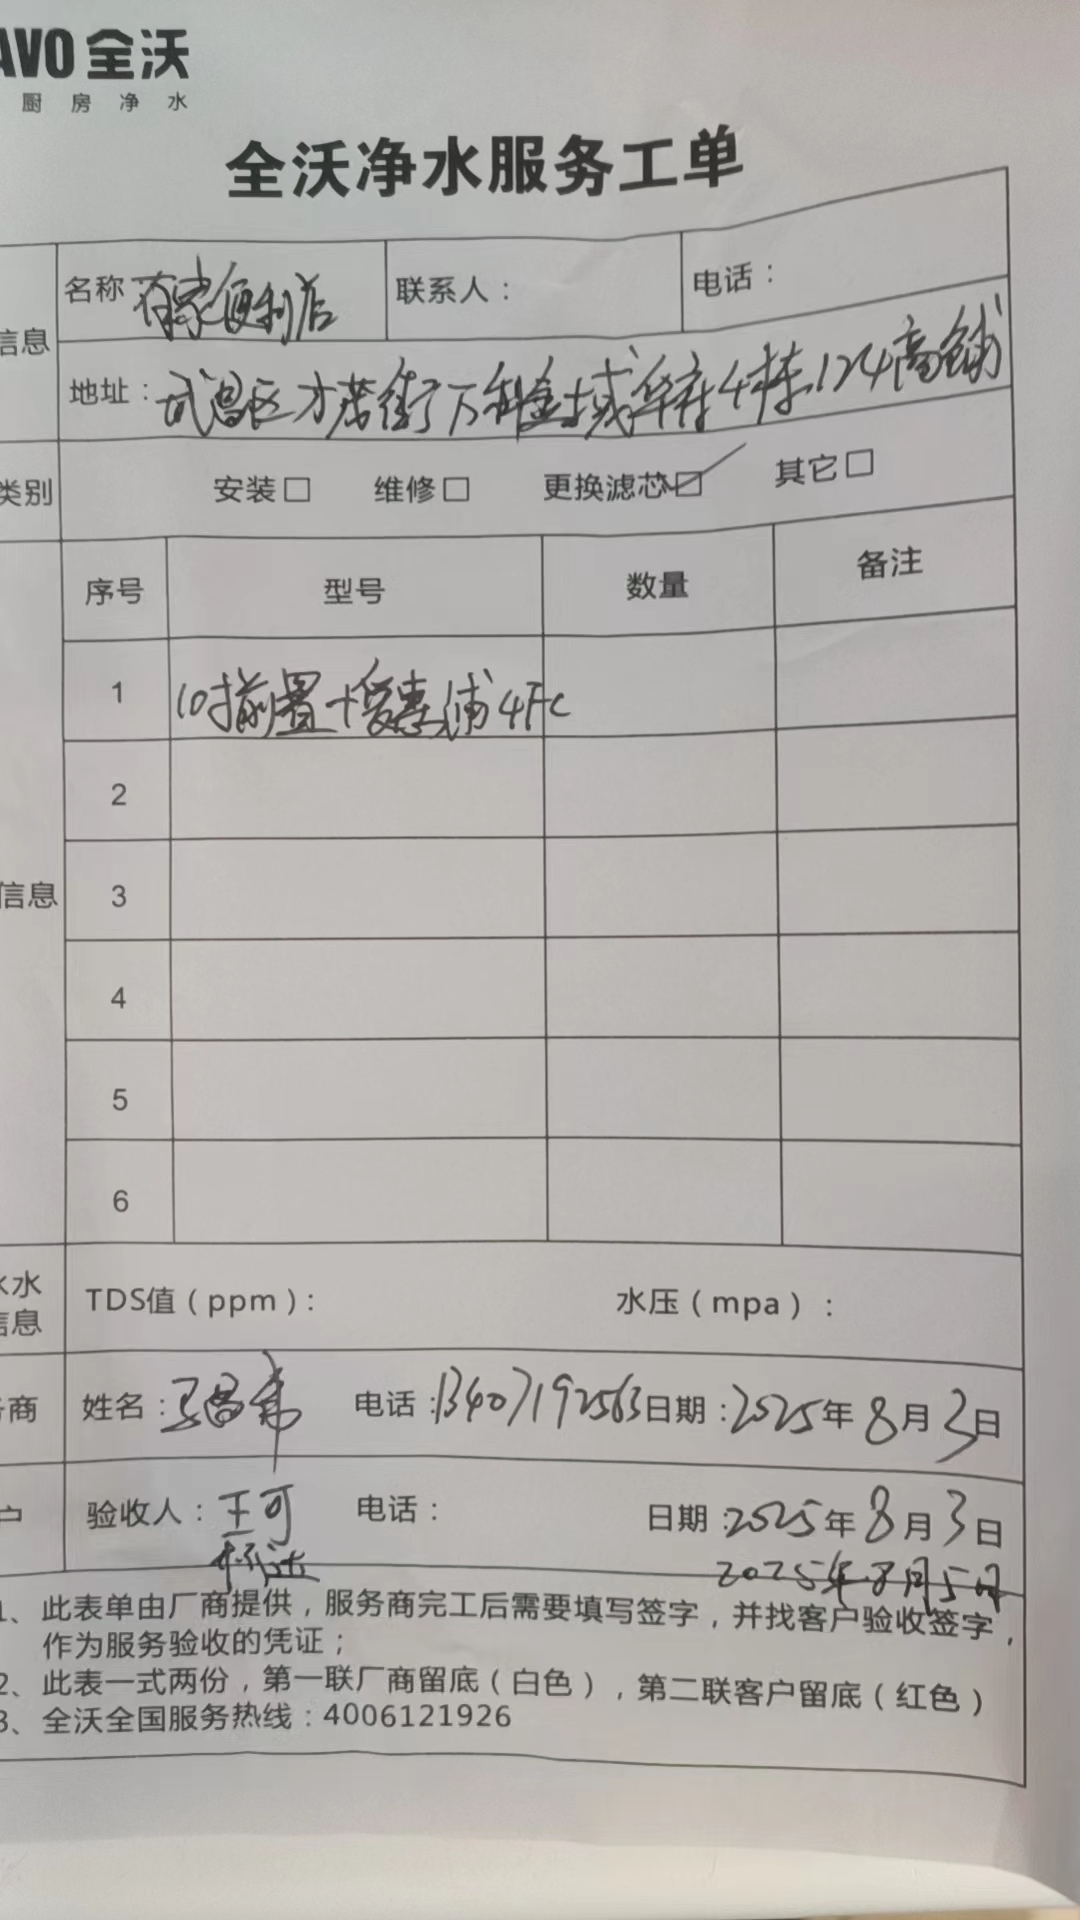 AVO 全沃
厨房净水
全沃净水服务工单
信息
名称 有家便利店 联系人： 电话：
地址：武昌区 街万科金域华府4栋124商铺
类别 安装□ 维修□ 更换滤芯☑ 其它□
序号 型号 数量 备注
1 10寸前置+爱惠浦4FC
2
信息
3
4
5
6
水
信息
TDS值（ppm）： 水压（mpa）：
商 姓名： 电话：13407192563 日期：2025年8月3日
户 验收人：王可 电话： 日期：2025年8月3日
2025年8月5日
1、此表单由厂商提供，服务商完工后需要填写签字，并找客户验收签字，
作为服务验收的凭证；
2、此表一式两份，第一联厂商留底（白色），第二联客户留底（红色）
3、全沃全国服务热线：4006121926